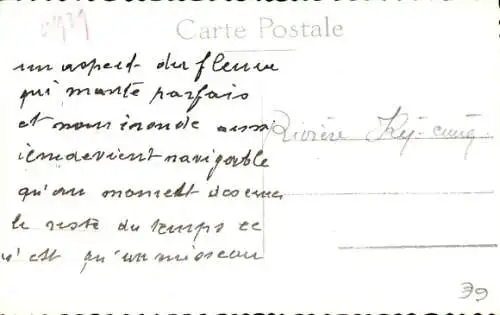 Carte Postale
un aspect du fleuve
qui monte parfois
et nous inonde aussi
il ne devient navigable
qu'au moment des crues
le reste du temps ce
n'est qu'un ruisseau
Rivière
39